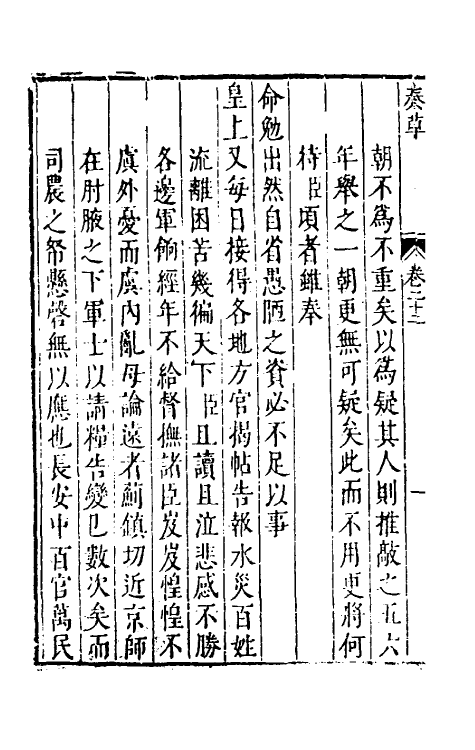 奏草
卷之十二
一
朝不爲不重矣以爲疑其人則推敲之五六
年舉之一朝更無可疑矣此而不用更將何
待臣頃者雖奉
命勉出然自省愚陋之資必不足以事
皇上又每日接得各地方官揭帖告報水災百姓
流離困苦幾徧天下臣且讀且泣悲感不勝
各邊軍餉經年不給督撫諸臣岌岌惶惶不
虞外憂而虞內亂毋論遠者薊鎮切近京師
在肘腋之下軍士以請糧告變已數次矣而
司農之帑懸磬無以應也長安中百官萬民